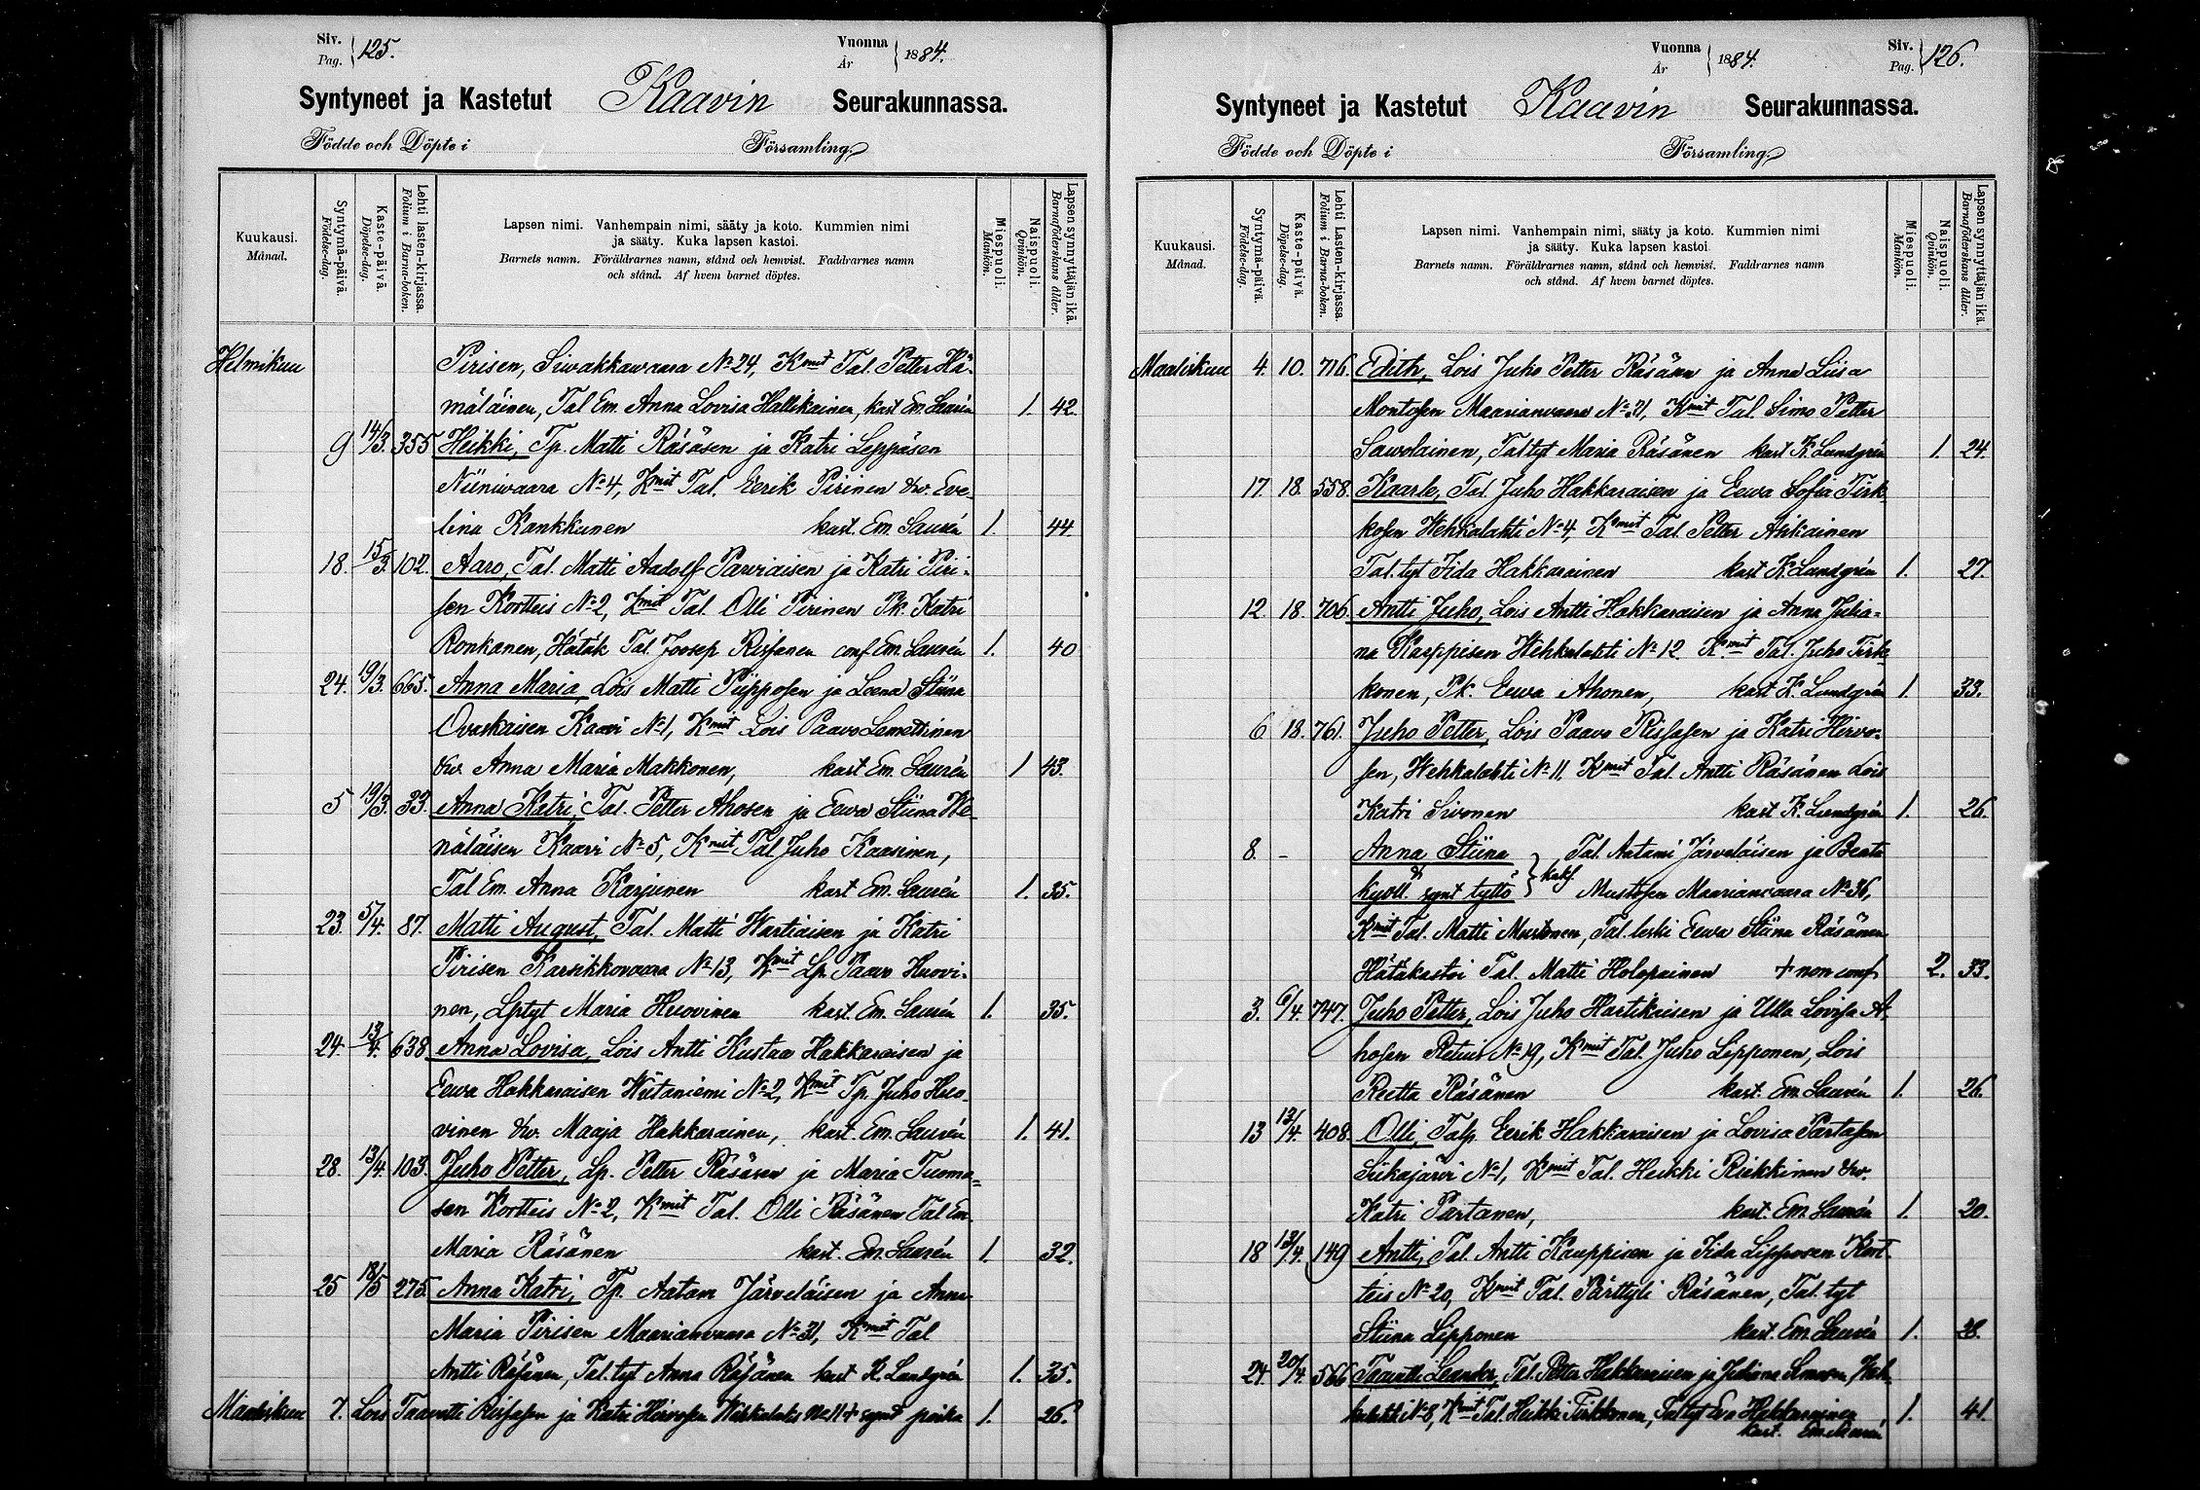 Siv. Pag. 125. Vuonna År 1884.
Syntyneet ja Kastetut Kaavin Seurakunnassa.
Födde och Döpte i Församling
Kuukausi. Månad.
Syntymä-päivä. Födelse-dag.
Kaste-päivä. Döpelse-dag.
Lehti lasten-kirjassa. Folium i Barna-boken.
Lapsen nimi. Vanhempain nimi, sääty ja koto. Kummien nimi
ja sääty. Kuka lapsen kastoi.
Barnets namn. Föräldrarnes namn, stånd och hemvist. Faddrarnes namn
och stånd. Af hvem barnet döptes.
Miespuoli. Mankön.
Naispuoli. Qvinkön.
Lapsen synnyttäjän ikä. Barnaföderskans ålder.
Helmikuu Pirisen, Siwakkawaara No 24, Kmit Tal. Petter Hä-
mäläinen, Tal Em. Anna Lovisa Hallikainen, kast Em. Laurén 1. 42.
9 14/3. 355 Heikki, Tp. Matti Räsäsen ja Katri Leppäsen
Niiniwaara No 4, Kmit Tal. Eerik Pirinen &w. Eve-
lina Kankkunen kast. Em. Laurén 1. 44.
18. 15/3. 102. Aaro, Tal. Matti Aadolf Parviaisen ja Katri Piri-
sen Kortteis No 2, Kmit Tal. Olli Pirinen Pk. Katri
Ronkanen, Hätäk Tal. Joosep Rissanen conf. Em. Laurén 1. 40
24. 19/3. 665. Anna Maria, Lois Matti Piipposen ja Leena Stiina
Ovaskaisen Kaavi No 1, Kmit Lois Paavo Lemettinen
&w. Anna Maria Makkonen, kast Em. Laurén 1 43.
5 19/3. 33. Anna Katri, Tal. Petter Ahosen ja Eewa Stiina We-
näläisen Kaavi No 5, Kmit Tal Juho Kaasinen,
Tal Em. Anna Karjunen kast Em. Laurén 1. 35.
23. 5/4. 87. Matti August, Tal. Matti Wartiaisen ja Katri
Pirisen Karsikkovaara No 13, Kmit Lp. Paavo Huovi-
nen, Lptyt Maria Huovinen kast. Em. Laurén 1. 35.
24. 13/4. 638 Anna Lovisa, Lois Antti Kustaa Hakkaraisen ja
Eewa Hakkaraisen Wiitaniemi No 2, Kmit Tp. Juho Huo-
vinen &w. Maaja Hakkarainen, kast. Em. Laurén 1. 41.
28. 13/4. 103. Juho Petter, Lp. Petter Räsäsen ja Maria Tuoma-
sen Kortteis No 2, Kmit Tal. Olli Räsänen Tal Em.
Maria Räsänen kast. Em. Laurén 1. 32.
25 18/5 275. Anna Katri, Tp. Aatam Järveläisen ja Anna
Maria Pirisen Maarianvaara No 31, Kmit Tal
Antti Räsänen, Tal. tyt Anna Räsänen kast K. Lundgrén 1. 35.
Maaliskuu 7. Lois Taavetti Rissasen ja Katri Hirvosen Wehkalaks No 11 + synt poika 1. 26.
Vuonna År 1884. Siv. Pag. 126.
Syntyneet ja Kastetut Kaavin Seurakunnassa.
Födde och Döpte i Församling
Kuukausi. Månad.
Syntymä-päivä. Födelse-dag.
Kaste-päivä. Döpelse-dag.
Lehti Lasten-kirjassa. Folium i Barna-boken.
Lapsen nimi. Vanhempain nimi, sääty ja koto. Kummien nimi
ja sääty. Kuka lapsen kastoi.
Barnets namn. Föräldrarnes namn, stånd och hemvist. Faddrarnes namn
och stånd. Af hvem barnet döptes.
Miespuoli. Mankön.
Naispuoli. Qvinkön.
Lapsen synnyttäjän ikä. Barnaföderskans ålder.
Maaliskuu 4. 10. 716. Edith, Lois Juho Petter Räsäsen ja Anna Liisa
Montosen Maarianvaara No 31, Kmit Tal. Simo Petter
Sawolainen, Tal tyt Maria Räsänen kast K. Lundgrén 1. 24.
17. 18. 558. Kaarle, Tal. Juho Hakkaraisen ja Eewa Sofia Tirk-
kosen Wehkalahti No 4, Kmit Tal. Petter Asikainen
Tal. tyt Iida Hakkarainen kast K. Lundgrén 1. 27.
12. 18. 706. Antti Juho, Lois Antti Hakkaraisen ja Anna Julia-
na Karppisen Wehkalahti No 12. Kmit Tal. Juho Tirk-
konen, Pk. Eewa Ahonen, kast K. Lundgrén 1. 33.
6 18. 761. Juho Petter, Lois Paavo Rissasen ja Katri Hirvo-
sen, Wehkalahti No 11. Kmit Tal. Antti Räsänen Lois
Katri Sivonen kast K. Lundgrén 1. 26.
8. - Anna Stiina Tal. Aatami Järveläisen ja Beata
& kuoll. synt tyttö } kaks. Mustosen Maarianvaara No 36,
Kmit Tal. Matti Mustonen, Tal. leski Eewa Stiina Räsänen
Hätäkastoi Tal. Matti Holopainen + non conf 2. 33.
3. 6/4. 747. Juho Petter, Lois Juho Hartikaisen ja Ulla Lovisa A-
hosen Retun No 19, Kmit Tal. Juho Lipponen, Lois
Reetta Räsänen kast. Em. Laurén 1. 26.
13 13/4. 408. Olli, Talp. Eerik Hakkaraisen ja Lovisa Partasen
Siikajärvi No 1, Kmit Tal. Heikki Riekkinen &w.
Katri Partanen, kast. Em. Laurén 1. 20.
18 13/4. 149 Antti, Tal. Antti Kauppisen ja Iida Lipposen Kort-
teis No 20, Kmit Tal. Pärttyli Räsänen, Tal. tyt
Stiina Lipponen kast. Em. Laurén 1. 28.
24. 20/4. 566 Taavetti Leander, Tal. Petter Hakkaraisen ja Juliana Weh-
kalahti No 8, Kmit Tal. Heikki Tirkkonen, Tal tyt Eva Hakkarainen 1. 41.
kast. Em. Laurén